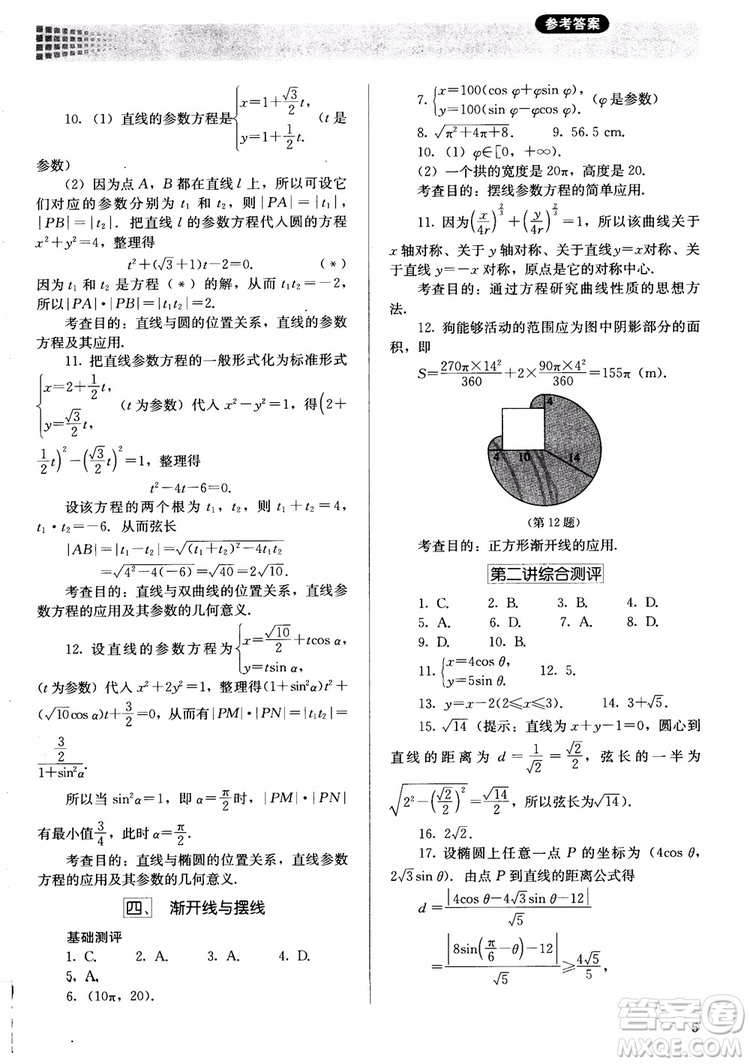 参考答案
10. (1) 直线的参数方程是{x=1+√3/2 t, y=1+1/2 t, (t 是
参数)
(2) 因为点 A，B 都在直线 l 上，所以可设它
们对应的参数分别为 t₁ 和 t₂，则 |PA|=|t₁|，
|PB|=|t₂|. 把直线 l 的参数方程代入圆的方程
x²+y²=4，整理得
t²+(√3+1)t-2=0. (*)
因为 t₁ 和 t₂ 是方程 (*) 的解，所以 t₁t₂=-2，
所以|PA|·|PB|=2.
考查目的：直线与圆的位置关系，直线的参数
方程及其应用.
11. 把直线参数方程的一般形式化为标准形式
{x=2+1/2 t, y=√3/2 t, (t 为参数) 代入 x²-y²=1，得(2+
1/2 t)²-(√3/2 t)²=1，整理得
t²-4t-6=0.
设该方程的两个根为 t₁，t₂，则 t₁+t₂=4，
t₁·t₂=-6. 从而弦长
|AB|=|t₁-t₂|=√((t₁+t₂)²-4t₁t₂)
=√(4²-4(-6))=√40=2√10.
考查目的：直线与双曲线的位置关系，直线参
数方程的应用及其参数的几何意义.
12. 设直线的参数方程为{x=√10/2+tcos α, y=tsin α,
(t 为参数) 代入 x²+2y²=1，得 (1+sin²α)t²+
(√10cos α)t+3/2=0，从而有|PM|·|PN|=|t₁t₂|=
(3/2)/(1+sin²α).
所以当 sin²α=1，即 α=π/2 时，|PM|·|PN|
有最小值3/4，此时 α=π/2.
考查目的：直线与椭圆的位置关系，直线参数
方程的应用及其参数的几何意义.
四、 渐开线与摆线
基础测评
1. C. 2. A. 3. A. 4. D.
5. A.
6. (10π，20).
7. {x=100(cos φ+φsin φ) y=100(sin φ-φcos φ) (φ 是参数)
8. √(π²+4π+8). 9. 56.5 cm.
10. (1) φ∈[0，+∞).
(2) 一个拱的宽度是 20π，高度是 20.
考查目的：摆线参数方程的简单应用.
11. 因为(x/4r)^(2/3)+(y/4r)^(2/3)=1，所以该曲线关于
x 轴对称、关于 y 轴对称、关于直线 y=x 对称、关
于直线 y=-x 对称，原点是它的对称中心.
考查目的：通过方程研究曲线性质的思想方
法.
12. 狗能够活动的范围应为图中阴影部分的面
积，即
S=270π×14²/360+2×90π×4²/360=155π (m).
4
4 10 14
(第 12 题)
考查目的：正方形渐开线的应用.
第二讲综合测评
1. C. 2. B. 3. B. 4. D.
5. A. 6. D. 7. A. 8. D.
9. D. 10. B.
11. {x=4cos θ, y=5sin θ. 12. 5.
13. y=x-2(2≤x≤3). 14. 3+√5.
15. √14 (提示：直线为 x+y-1=0，圆心到
直线的距离为 d=1/√2=√2/2，弦长的一半为
√(2²-(√2/2)²)=√14/2，所以弦长为√14).
16. 2√2.
17. 设椭圆上任意一点 P 的坐标为 (4cos θ，
2√3sin θ). 由点 P 到直线的距离公式得
d=|4cos θ-4√3sin θ-12|/√5
=|8sin(π/6-θ)-12|/√5≥4√5/5，
5
答案圈
MXQE.COM